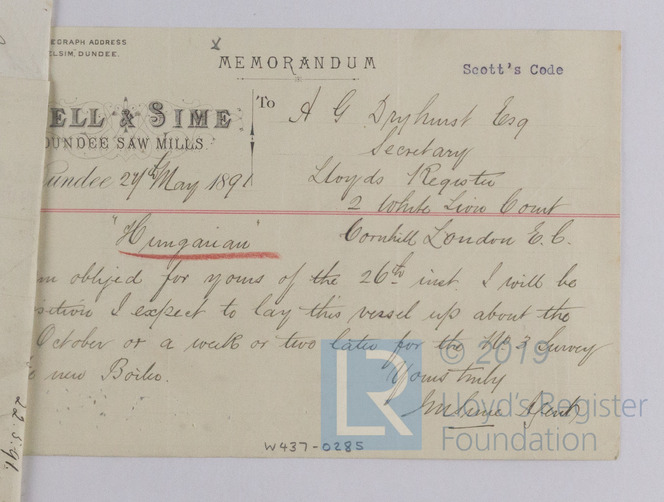 EGRAPH ADDRESS
ELSIM, DUNDEE.
x
MEMORANDUM
Scott's Code
ELL & SIME
DUNDEE SAW MILLS.
To
A G Dryhurst Esq
Secretary
Dundee 27th May 1891
Lloyds Register
2 White Lion Court
"Hungarian"
Cornhill London E.C.
m obliged for yours of the 26th inst. I will be
I expect to lay this vessel up about the
October or a week or two later for the No 3 Survey
new Boiler.
Yours truly
Sime Agent
22.5.91
W437-0285
© 2019
LR
Lloyd's Register
Foundation